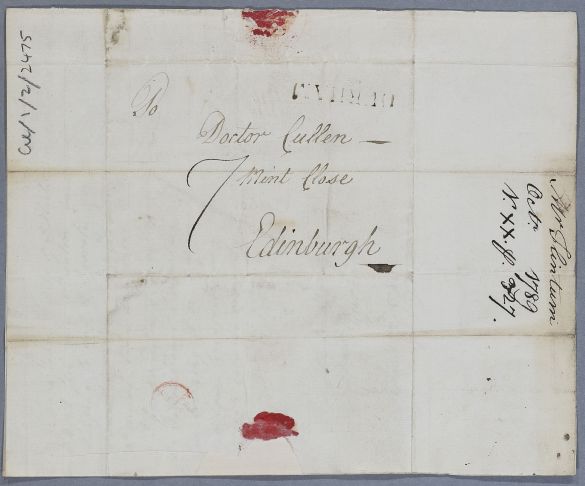 CUL/1/2/2475
To
Doctor Cullen —
7 Mint Close
Edinburgh
Mr
Octr. 1789
V. XX. p. 327.